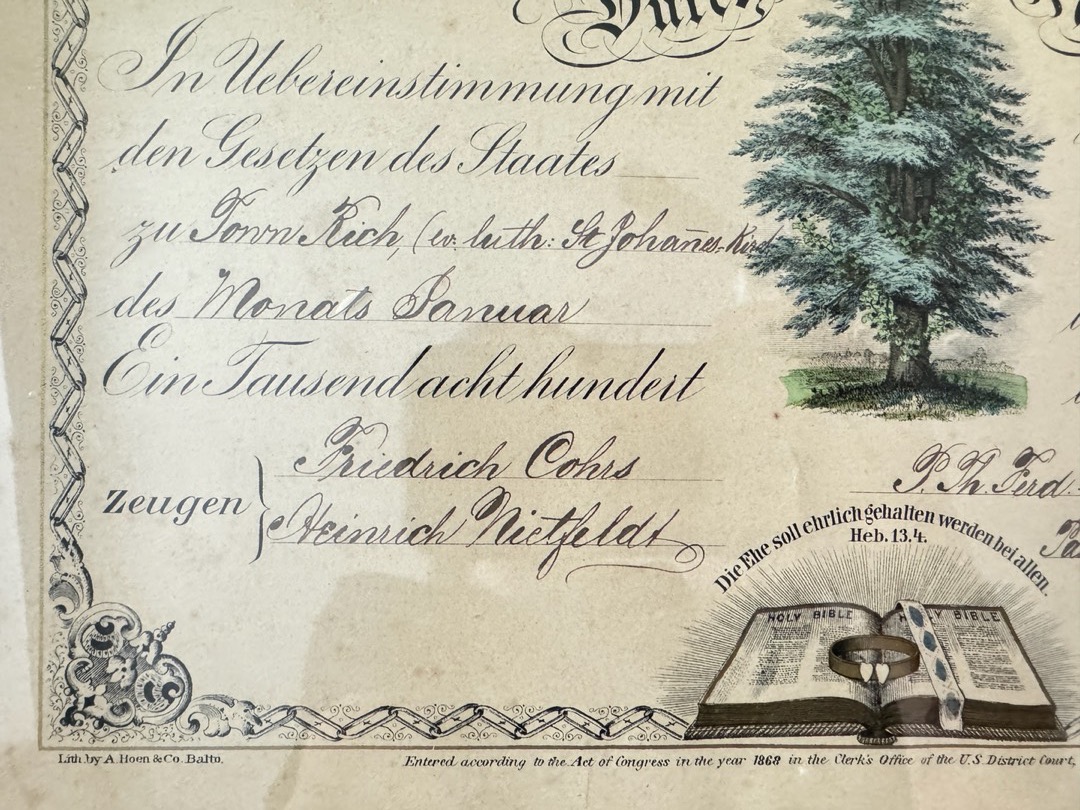 Durch
In Uebereinstimmung mit
den Gesetzen des Staates
zu Town Rich, (ev. luth: St Johañes-Kirch
des Monats Januar
Ein Tausend acht hundert
Zeugen
Friedrich Cohrs
Heinrich Nietfeldt
P. Th. Ferd.
Die Ehe soll ehrlich gehalten werden bei allen.
Heb. 13.4.
HOLY BIBLE HOLY BIBLE
Lith by A. Hoen & Co. Balto.
Entered according to the Act of Congress in the year 1868 in the Clerk's Office of the U.S. District Court,